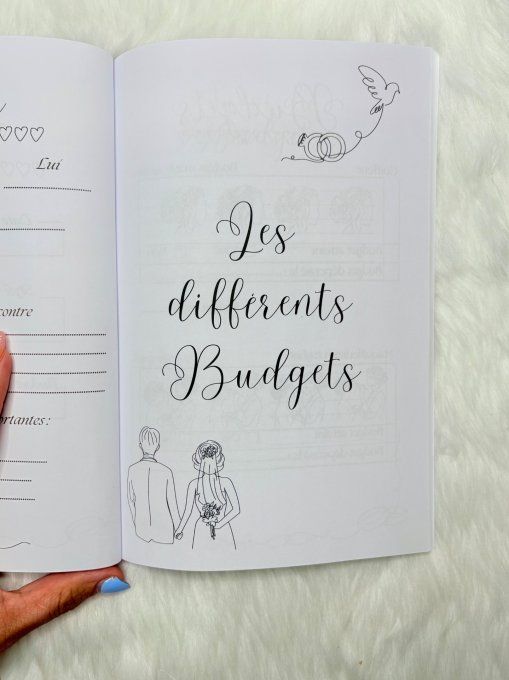 Lui
contre
portantes:
Les
différents
Budgets